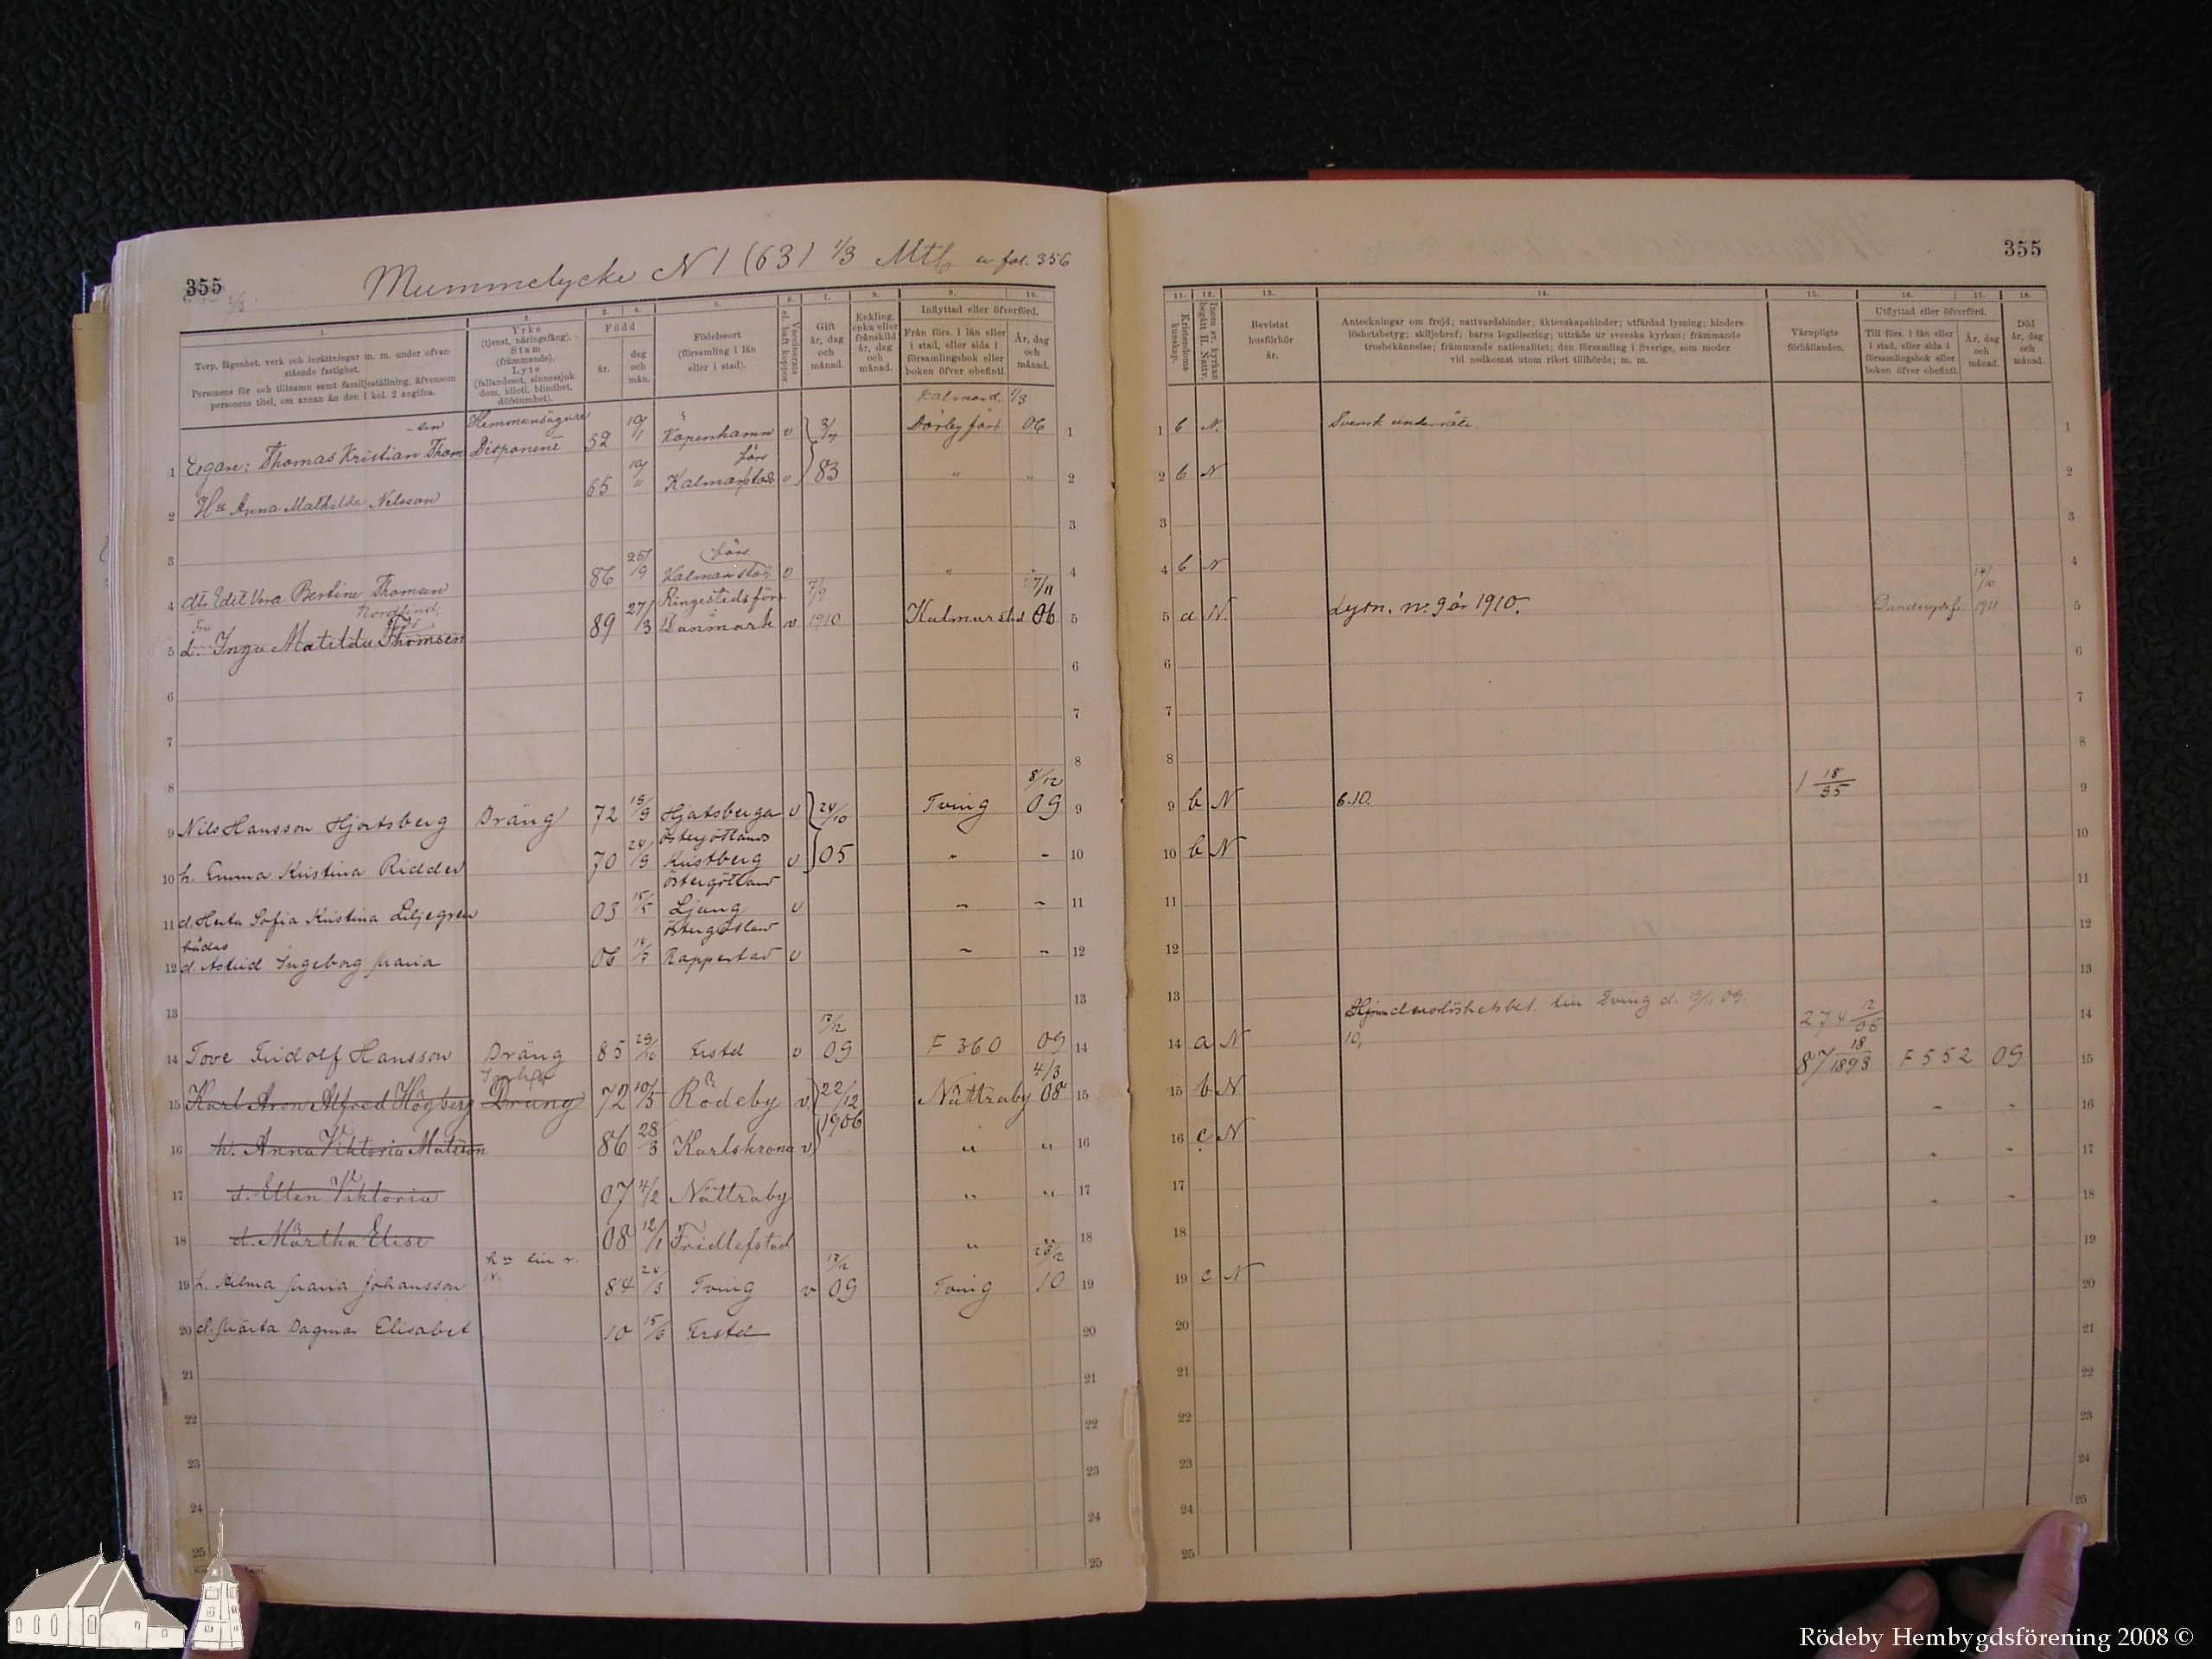 355
Mummelycke N 1 (63) 1/3 Mtl
fol. 356
1.
2.
3.
4.
5.
6.
7.
8.
9.
10.
Torp, lägenhet, verk och inrättningar m. m. under ofvanstående fastighet.
Personens för- och tillnamn samt familjeställning, äfvensom
personens titel, om annan än den i kol. 2 angifna.
Yrke
(tjenst, näringsfång).
Stam
(främmande).
Lyte
(fallandesot, sinnessjukdom, idioti, blindhet,
döfstumhet).
Född
år.
dag
och
mån.
Födelseort
(församling i län
eller i stad).
Vaccinerats
el. haft koppor.
Gift
år, dag
och
månad.
Enkling,
enka eller
frånskild
år, dag
och
månad.
Inflyttad eller öfverförd.
Från förs. i län eller
i stad, eller sida i
församlingsbok eller
boken öfver obefintl.
År, dag
och
månad.
Kalmar l. 1/3
1 Egare: Thomas Kristian Thomsen Hemmansägare Disponent 52 19/1 Köpenhamn v 3/7 Dörby förs 06 1
2 Hu Anna Mathilda Nilsson 65 Kalmar stads förs v 83 " " 2
3 3
4 dtr Edit Vera Bertine Thomsen 86 25/9 Kalmar stads förs. v " 4
5 Fru d. Inga Matilda Thomsen Nordlind 89 27/3 Ringesteds förs. Danmark v 7/9 1910 Kalmar std 7/11 06 5
6 6
7 7
8 8
9 Nils Hansson Hjortsberg Dräng 72 9 Hjatsberga v 24/10 Tving 8/12 09 9
10 h. Emma Kristina Ridder 70 24/9 Östergötland Kristberg v 05 " " 10
11 d. Herta Sofia Kristina Liljegren 03 15/5 Östergötland Ljung v " " 11
12 bådas d. Astrid Ingeborg Maria 06 Östergötland Rappestad v " " 12
13 13
14 Tove Fridolf Hansson Dräng 85 29/10 Frstd v 13/12 09 F 360 09 14
15 Karl Aron Alfred Högberg Dräng 72 10/5 Rödeby v 22/12 1906 Nättraby 4/3 08 15
16 h. Anna Viktoria Matsson 86 28/3 Karlskrona v " " 16
17 d. Ellen Viktoria 07 4/2 Nättraby " " 17
18 d. Märtha Elise 08 12/1 Fridlefstad " " 18
19 h. Hilma Maria Johansson 84 3 Tving v 13/12 09 Tving 10 19
20 d. Märta Dagmar Elisabet 10 15/6 Frstd 20
21 21
22 22
23 23
24 24
25 25
355
11.
12.
13.
14.
15.
16.
17.
18.
Kristendoms-
kunskap.
Inom sv. kyrkan
begått H. Nattv.
Bevistat
husförhör
år.
Anteckningar om frejd; nattvardshinder; äktenskapshinder; utfärdad lysning; hinderslöshetsbetyg; skiljobref, barns legalisering; utträde ur svenska kyrkan; främmande
trosbekännelse; främmande nationalitet; den församling i Sverige, som moder
vid nedkomst utom riket tillhörde; m. m.
Värnpligts-
förhållanden.
Utflyttad eller öfverförd.
Till förs. i län eller
i stad, eller sida i
församlingsbok eller
boken öfver obefintl.
År, dag
och
månad.
Död
år, dag
och
månad.
1 b N. Svensk undersåte. 1
2 b N 2
3 3
4 b N 4
5 a N. Lysn. nr. 9 år 1910. Danderyds f. 14/10 1911 5
6 6
7 7
8 8
9 b N 6.10. 1 18/95 9
10 b N 10
11 11
12 12
13 13
14 a N Hinderslöshetsbet. till Tving d. 09. 10, 274 12/06 14
15 b N 87 18/1893 F 552 09 15
16 c N " " 16
17 " " 17
18 " " 18
19 c N 19
20 20
21 21
22 22
23 23
24 24
25 25
Rödeby Hembygdsförening 2008 ©